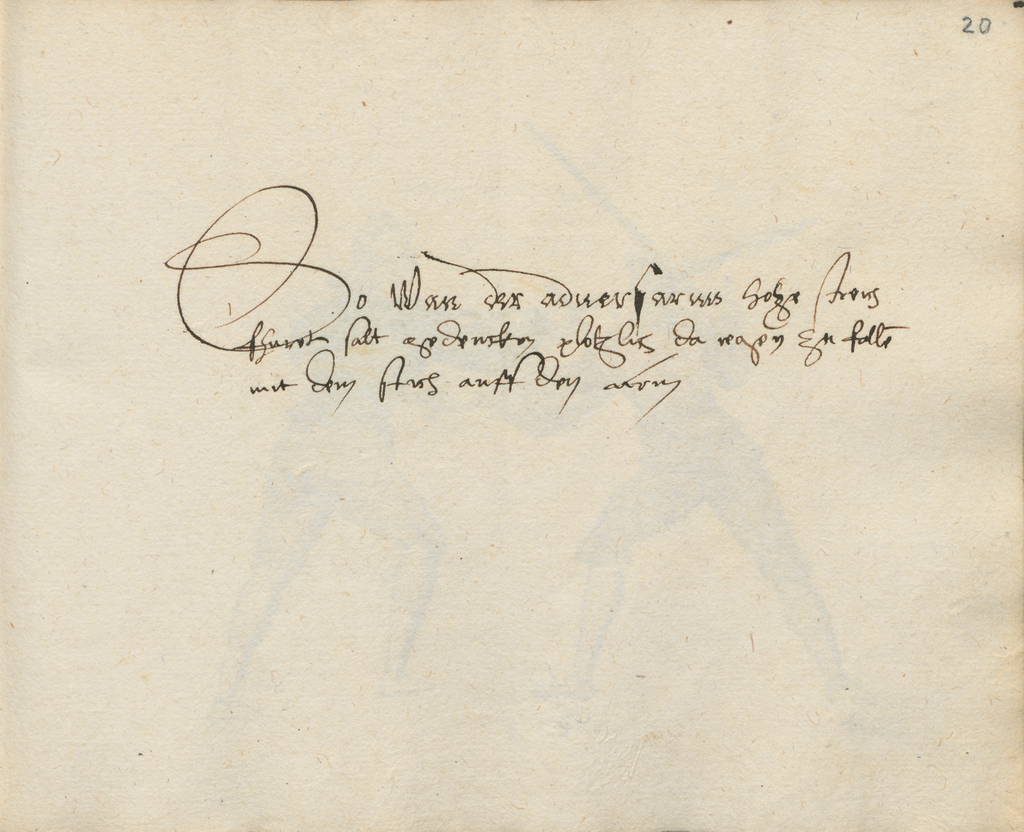 20
So Wan der aduersarius hohe streig
fhuret salt gedencken plotzlich da regen zu falle
mit dem stich auff den arm